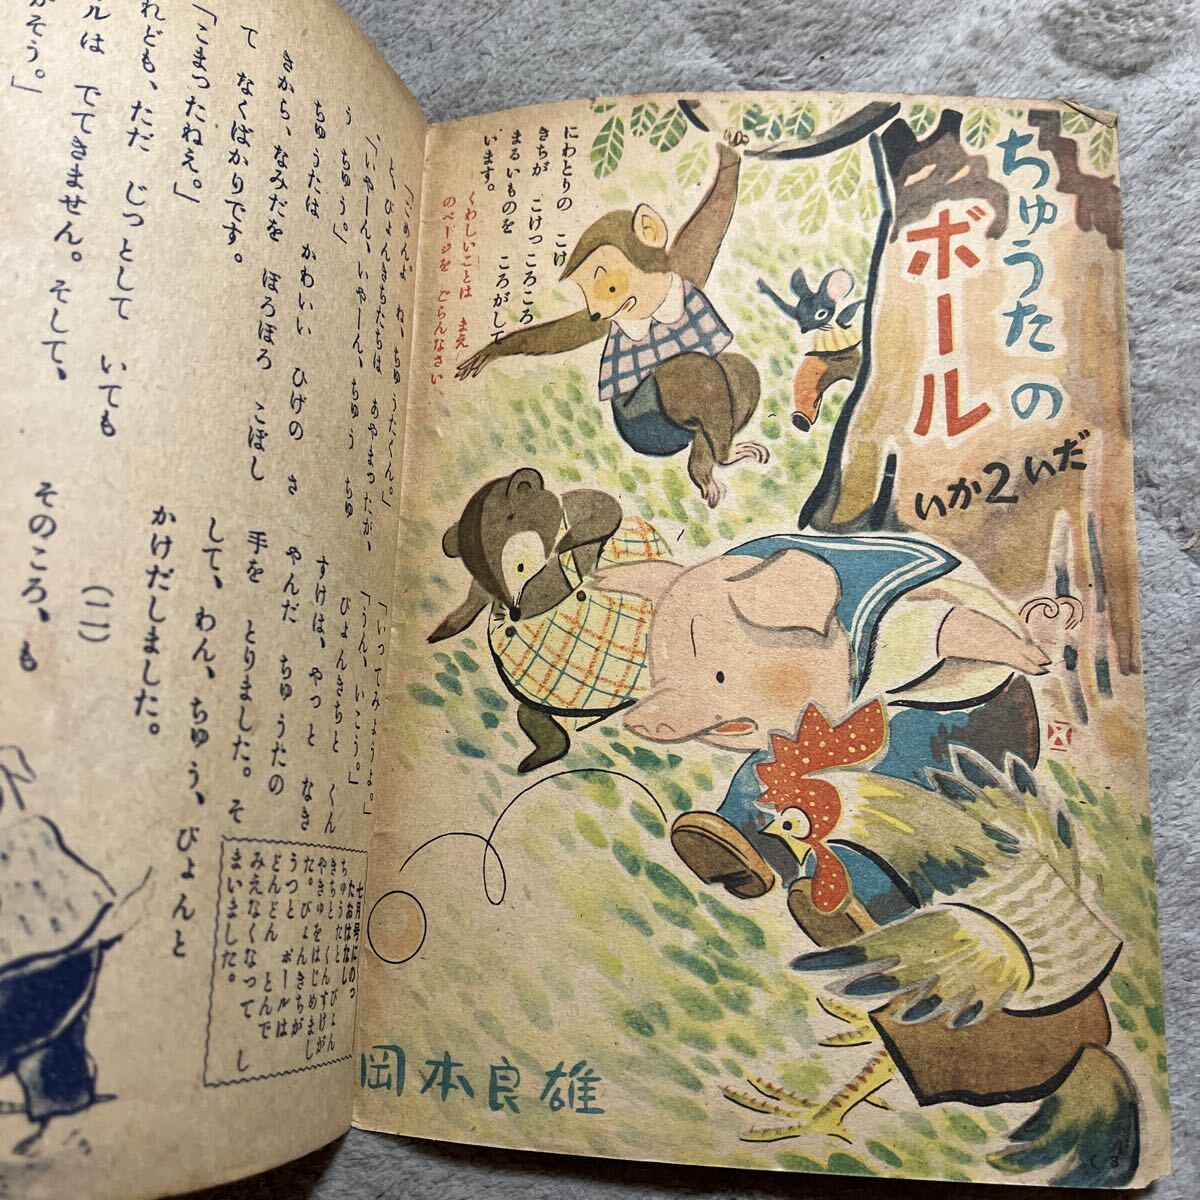 ちゅうたの
ボール
だい2かい
にわとりの こけ
きちが こけっころころ
まるいものを ころがして
います。
くわしいことは まえ
のページを ごらんなさい
岡本良雄
「ごめんよ ね、ちゅうたくん。」
と、ぴょんきちたちは あやまったが、
「いやーん、いやーん、ちゅう ちゅ
う ちゅう。」
ちゅうたは かわいい ひげの さ
きから、なみだを ぽろぽろ こぼし
て なくばかりです。
「こまったねえ。」
れども、ただ じっとして いても
ルは でてきません。そして、
がそう。」
「いってみようよ。」
「うん、いこう。」
ぴょんきちと くん
すけは、やっと なき
やんだ ちゅうたの
手を とりました。そ
して、わん、ちゅう、ぴょんと
かけだしました。
(二)
そのころ、も
七月号にのっ
たおはなし
ちゅうたと ぴょん
きちと くんすけが
やきゅうをはじめまし
た。ぴょんきちが
うつと ボールは
どんどん とんで
みえなくなって し
まいました。